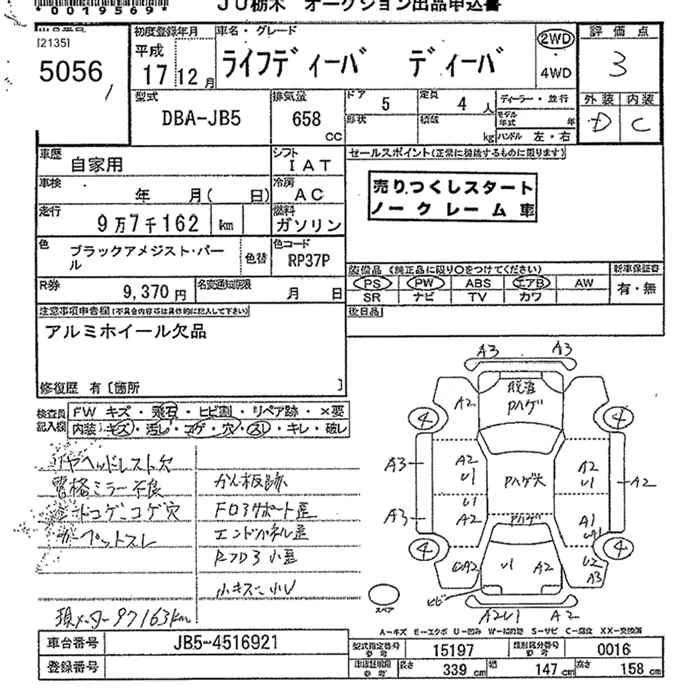 *0019569*
JU栃木 オークション出品申込書
[2135]
5056
初度登録年月
平成
17 12月
車名・グレード
ライフディーバ ディーバ
2WD
・
4WD
評価点
3
外装 内装
D C
型式
DBA-JB5
排気量
658
CC
ドア
5
定員
4 人
形状
積載
kg
ディーラー・並行
モデル年式
年
ハンドル 左・右
車歴
自家用
シフト
IAT
車検
年 月( 日)
冷房
AC
走行
9万7千162 km
燃料
ガソリン
色
ブラックアメジスト・パール
色替
色コード
RP37P
R券
9,370 円
名変通知期限
月 日
セールスポイント(正常に機能するものに限ります)
売りつくしスタート
ノークレーム車
装備品 (純正品に限り○をつけてください)
PS PW ABS エアB AW
SR ナビ TV カワ
新車保証書
有・無
後日品
注意事項申告欄(不具合内容等は具体的に記入して下さい)
アルミホイール欠品
修復歴 有 [箇所 ]
検査員記入欄
FW キズ・飛石・ヒビ割・リペア跡・×要
内装・キズ・汚し・コゲ・穴・スレ・キレ・破レ
リヤヘッドレスト欠
電格ミラー不良
コゲ コゲ穴
カーペットスレ
かん板跡
FロアサポートΩ歪
エンドパネル歪
小キズ 小U
現メーター97163km
A3 A3
A2
脱着
Pハゲ
4 4
A3
A2
U1
Pハゲ大
A2
U1
A2
A3
U1
A2
Pハゲ
A1
4 4
A2
U1 A2
U2
A3
ヒビ
A2U1 A2
スペア
A-キズ E-エクボ U-凹み W-補修跡 S-サビ C-腐食 XX-交換済
車台番号
JB5-4516921
登録番号
型式指定番号
15197
類別区分番号
0016
長さ 339 cm
幅 147 cm
高さ 158 cm